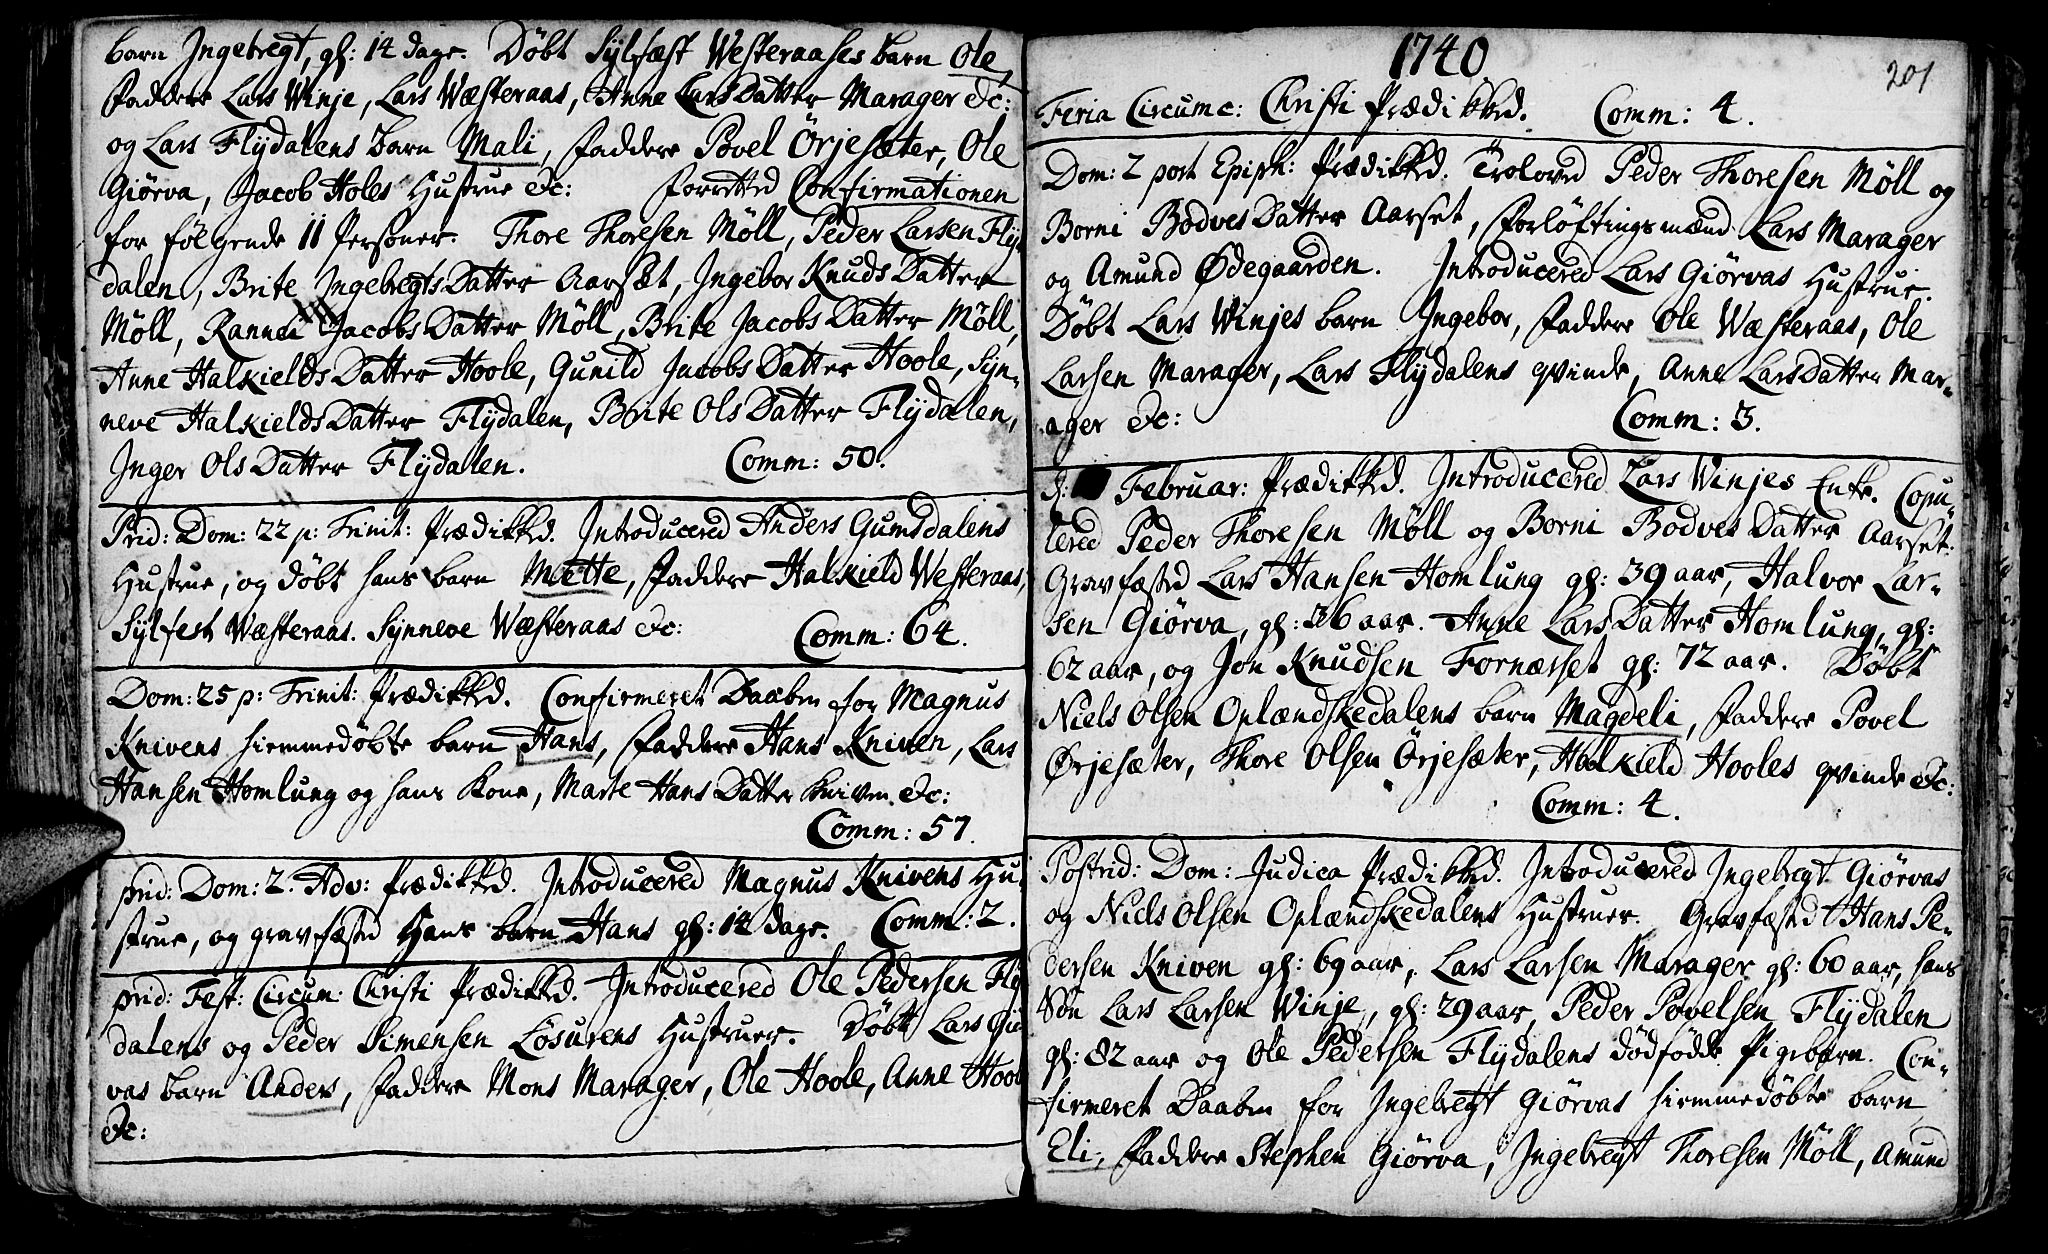 barn Ingebregt, gl: 14 dage. Döbt Sylfæst Westeraases barn Ole,
Faddere Lars Winje, Lars Wæsteraas, Anne LarsDatter Marager &c:
og Lars Flÿdalens barn Mali, Faddere Povel Örjesæter, Ole
Giörva, Jacob Holes Hustrue &c: Forretted Confirmationen
for fölgende 11 Personer. Thore Thoresen Möll, Peder Larsen Flÿ-
dalen, Brite IngebregtsDatter Aarsæt, Ingebor KnudsDatter
Möll, Rannei JacobsDatter Möll, Brite JacobsDatter Möll,
Anne HalkieldsDatter Hoole, Gunild JacobsDatter Hoole, Syn-
neve HalkieldsDatter Flÿdalen, Brite OlsDatter Flÿdalen,
Inger OlsDatter Flÿdalen. Comm: 50.
Prid: Dom: 22 p: Trinit: Prædikked. Introducered Anders Gumsdalens
Hustrue, og döbt hans barn Mætte, Faddere Halkield Westeraas,
Sylfest Wæsteraas. Synneve Wæsteraas &c: Comm: 64.
Dom: 25 p: Trinit: Prædikked. Confirmeret Daaben for Magnus
Knivens hiemmedöbte barn Hans, Faddere Hans Kniven, Lars
Hansen Homlung og hans Kone, Marte HansDatter Kniven &c:
Comm: 57.
prid: Dom: 2. Adv: Prædikked. Introducered Magnus Knivens Hu-
strue, og gravfæsted Hans barn Hans gl: 14 dage. Comm: 2.
prid: Fest: Circum: Christi Prædikked. Introducered Ole Pedersen Flÿ
dalens og Peder Simensen Lösurens Hustruer. Döbt Lars Giör
vas barn Anders, Faddere Mons Marager, Ole Hoole, Anne Hoole
&c:
1740
201
Feria Circumc: Christi Prædikked. Comm: 4.
Dom: 2 post Epiph: Prædikked. Troloved Peder Thoresen Möll og
Borni BodvesDatter Aarset, Forlöftingsmænd Lars Marager
og Amund Ødegaarden. Introducered Lars Giörvas Hustrue.
Döbt Lars Winjes barn Ingebor, Faddere Ole Wæsteraas, Ole
Larsen Marager, Lars Flÿdalens qvinde, Anne LarsDatter Mar-
ager &c: Comm: 3.
Februar: Prædikked. Introducered Lars Winjes Enke. Copu-
lered Peder Thoresen Möll og Borni BodvesDatter Aarset.
Gravfæsted Lars Hansen Homlung gl: 39 aar, Halvor Lar-
sen Giörva, gl: 36 aar. Anne LarsDatter Homlung, gl:
62 aar, og Jon Knudsen Fornæsset gl: 72 aar. Döbt
Niels Olsen Oplændskedalens barn Magdeli, Faddere Povel
Ørjesæter, Thore Olsen Örjesæter, Halkield Hooles qvinde &c:
Comm: 4.
Postrid: Dom: Judica Prædikked. Introducered Ingebregt Giörvas
og Niels Olsen Oplændskedalens Hustruer. Gravfæsted Hans Pe-
dersen Kniven gl: 69 aar, Lars Larsen Marager gl: 60 aar, hans
Sön Lars Larsen Winje, gl: 29 aar, Peder Povelsen Flÿdalen
gl: 82 aar og Ole Pedersen Flÿdalens dödfödde Pigebarn. Con-
firmeret Daaben for Ingebregt Giörvas hiemmedöbte barn
Eli, Faddere Stephen Giörva, Ingebregt Thoresen Möll, Amund